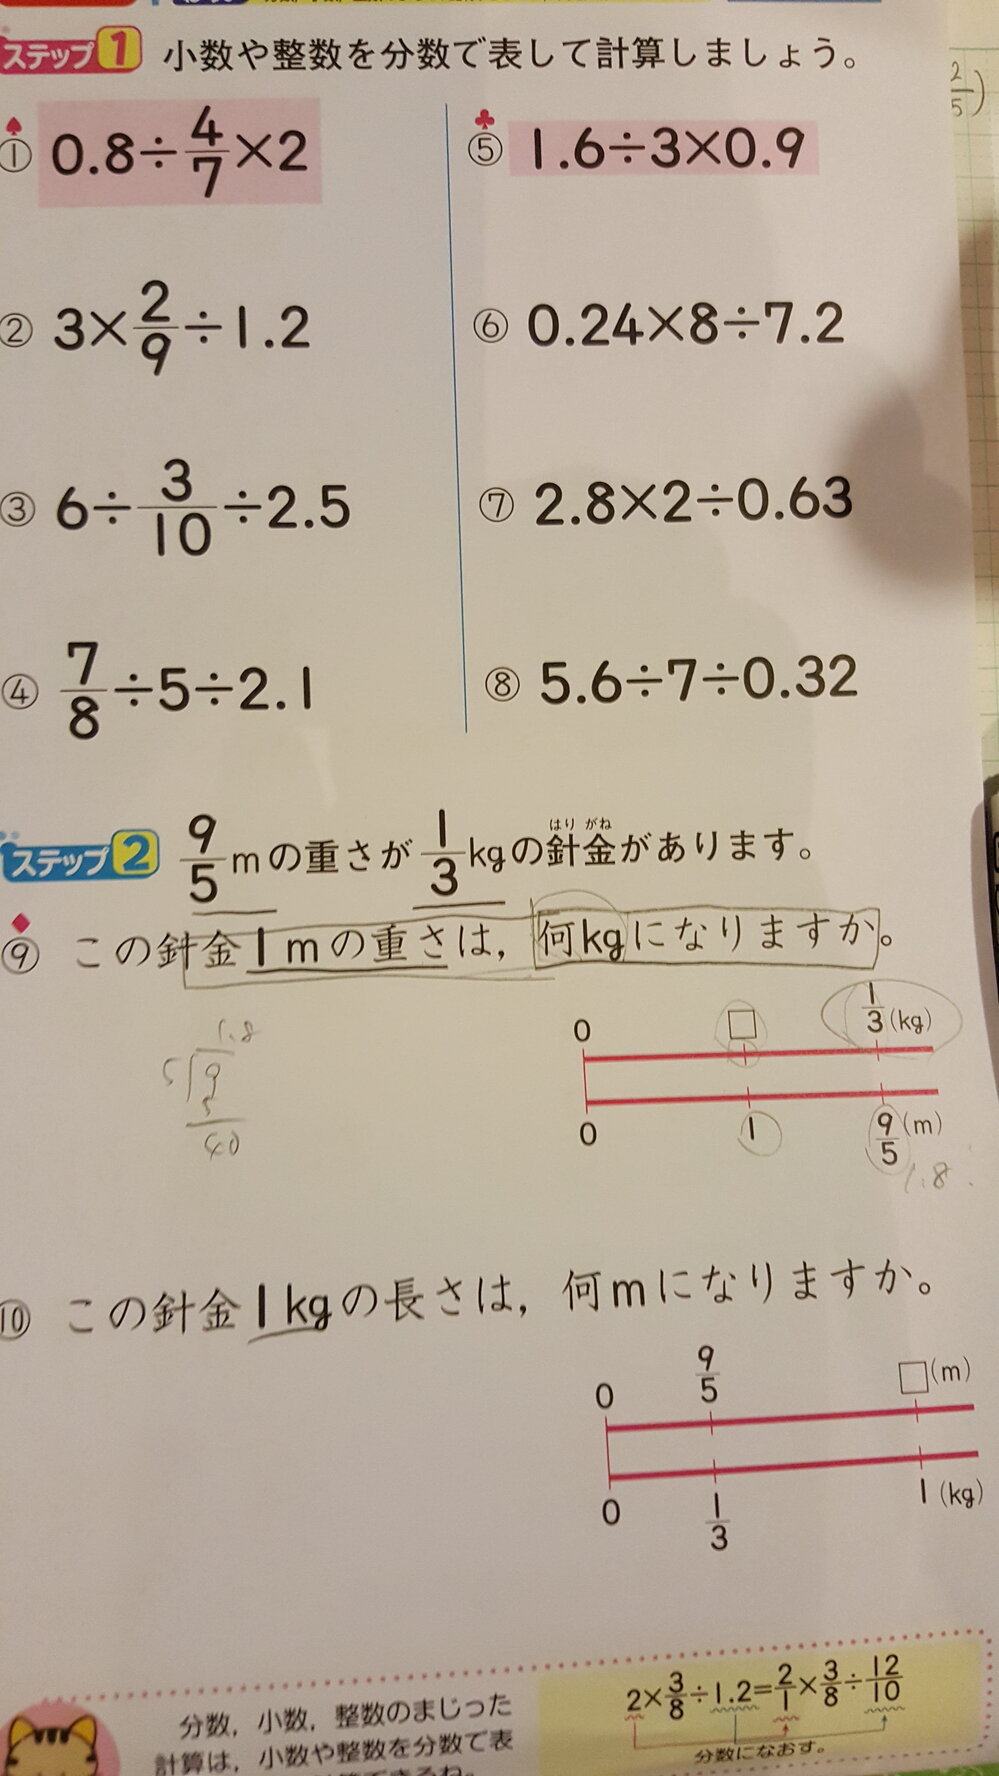 ステップ1 小数や整数を分数で表して計算しましょう。
① 0.8÷4/7×2
② 3×2/9÷1.2
③ 6÷3/10÷2.5
④ 7/8÷5÷2.1
⑤ 1.6÷3×0.9
⑥ 0.24×8÷7.2
⑦ 2.8×2÷0.63
⑧ 5.6÷7÷0.32
2/5)
ステップ2 9/5mの重さが1/3kgの針金があります。
はりがね
⑨ この針金1mの重さは,何kgになりますか。
0 □ 1/3(kg)
0 1 9/5(m)
1.8
1.8
5 9
5
40
⑩ この針金1kgの長さは,何mになりますか。
0 9/5 □(m)
0 1/3 1(kg)
分数,小数,整数のまじった
計算は,小数や整数を分数で表
2×3/8÷1.2=2/1×3/8÷12/10
分数になおす。